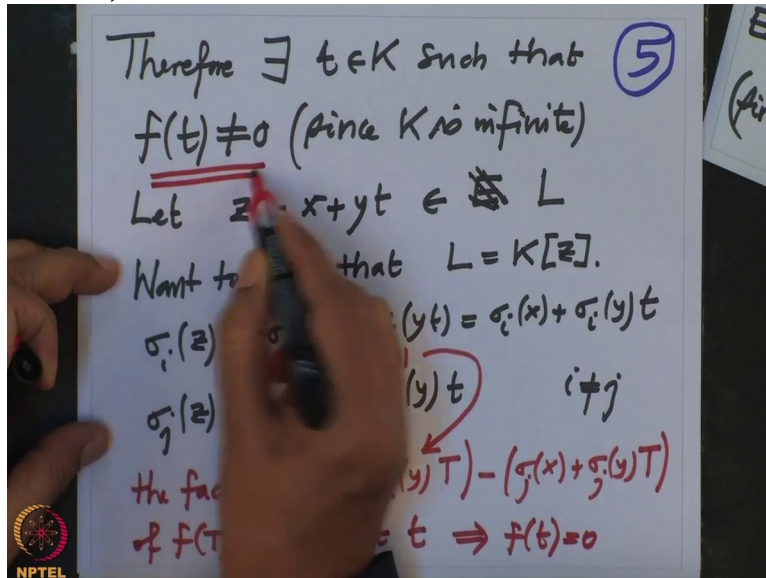 Therefore ∃ t ∈ K such that
5
f(t) ≠ 0 (since K is infinite)
Let z x + yt ∈ L
Want to that L = K[z].
σᵢ(z) (yt) = σᵢ(x) + σᵢ(y) t
σⱼ(z) (y) t i ≠ j
the (y) T) - (σⱼ(x) + σⱼ(y) T)
of t ⇒ f(t) = 0
NPTEL